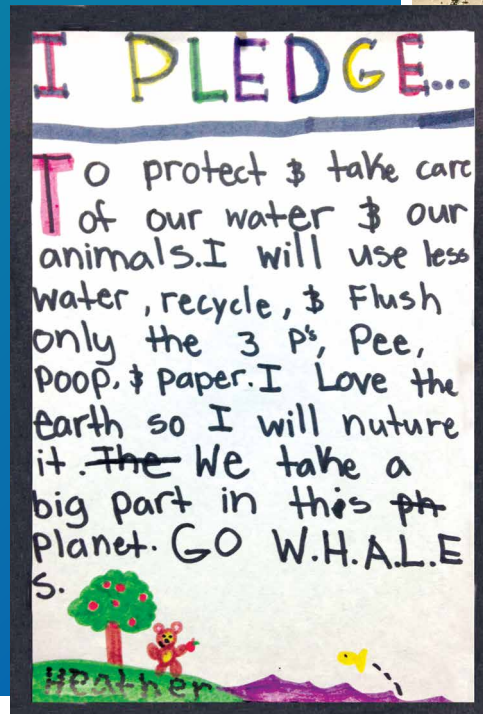 I PLEDGE...
To protect & take care
of our water & our
animals. I will use less
water, recycle, & Flush
only the 3 P's, Pee,
Poop, & Paper. I Love the
earth so I will nuture
it. The We take a
big part in this ph
planet. GO W.H.A.L.E
S.
Heather